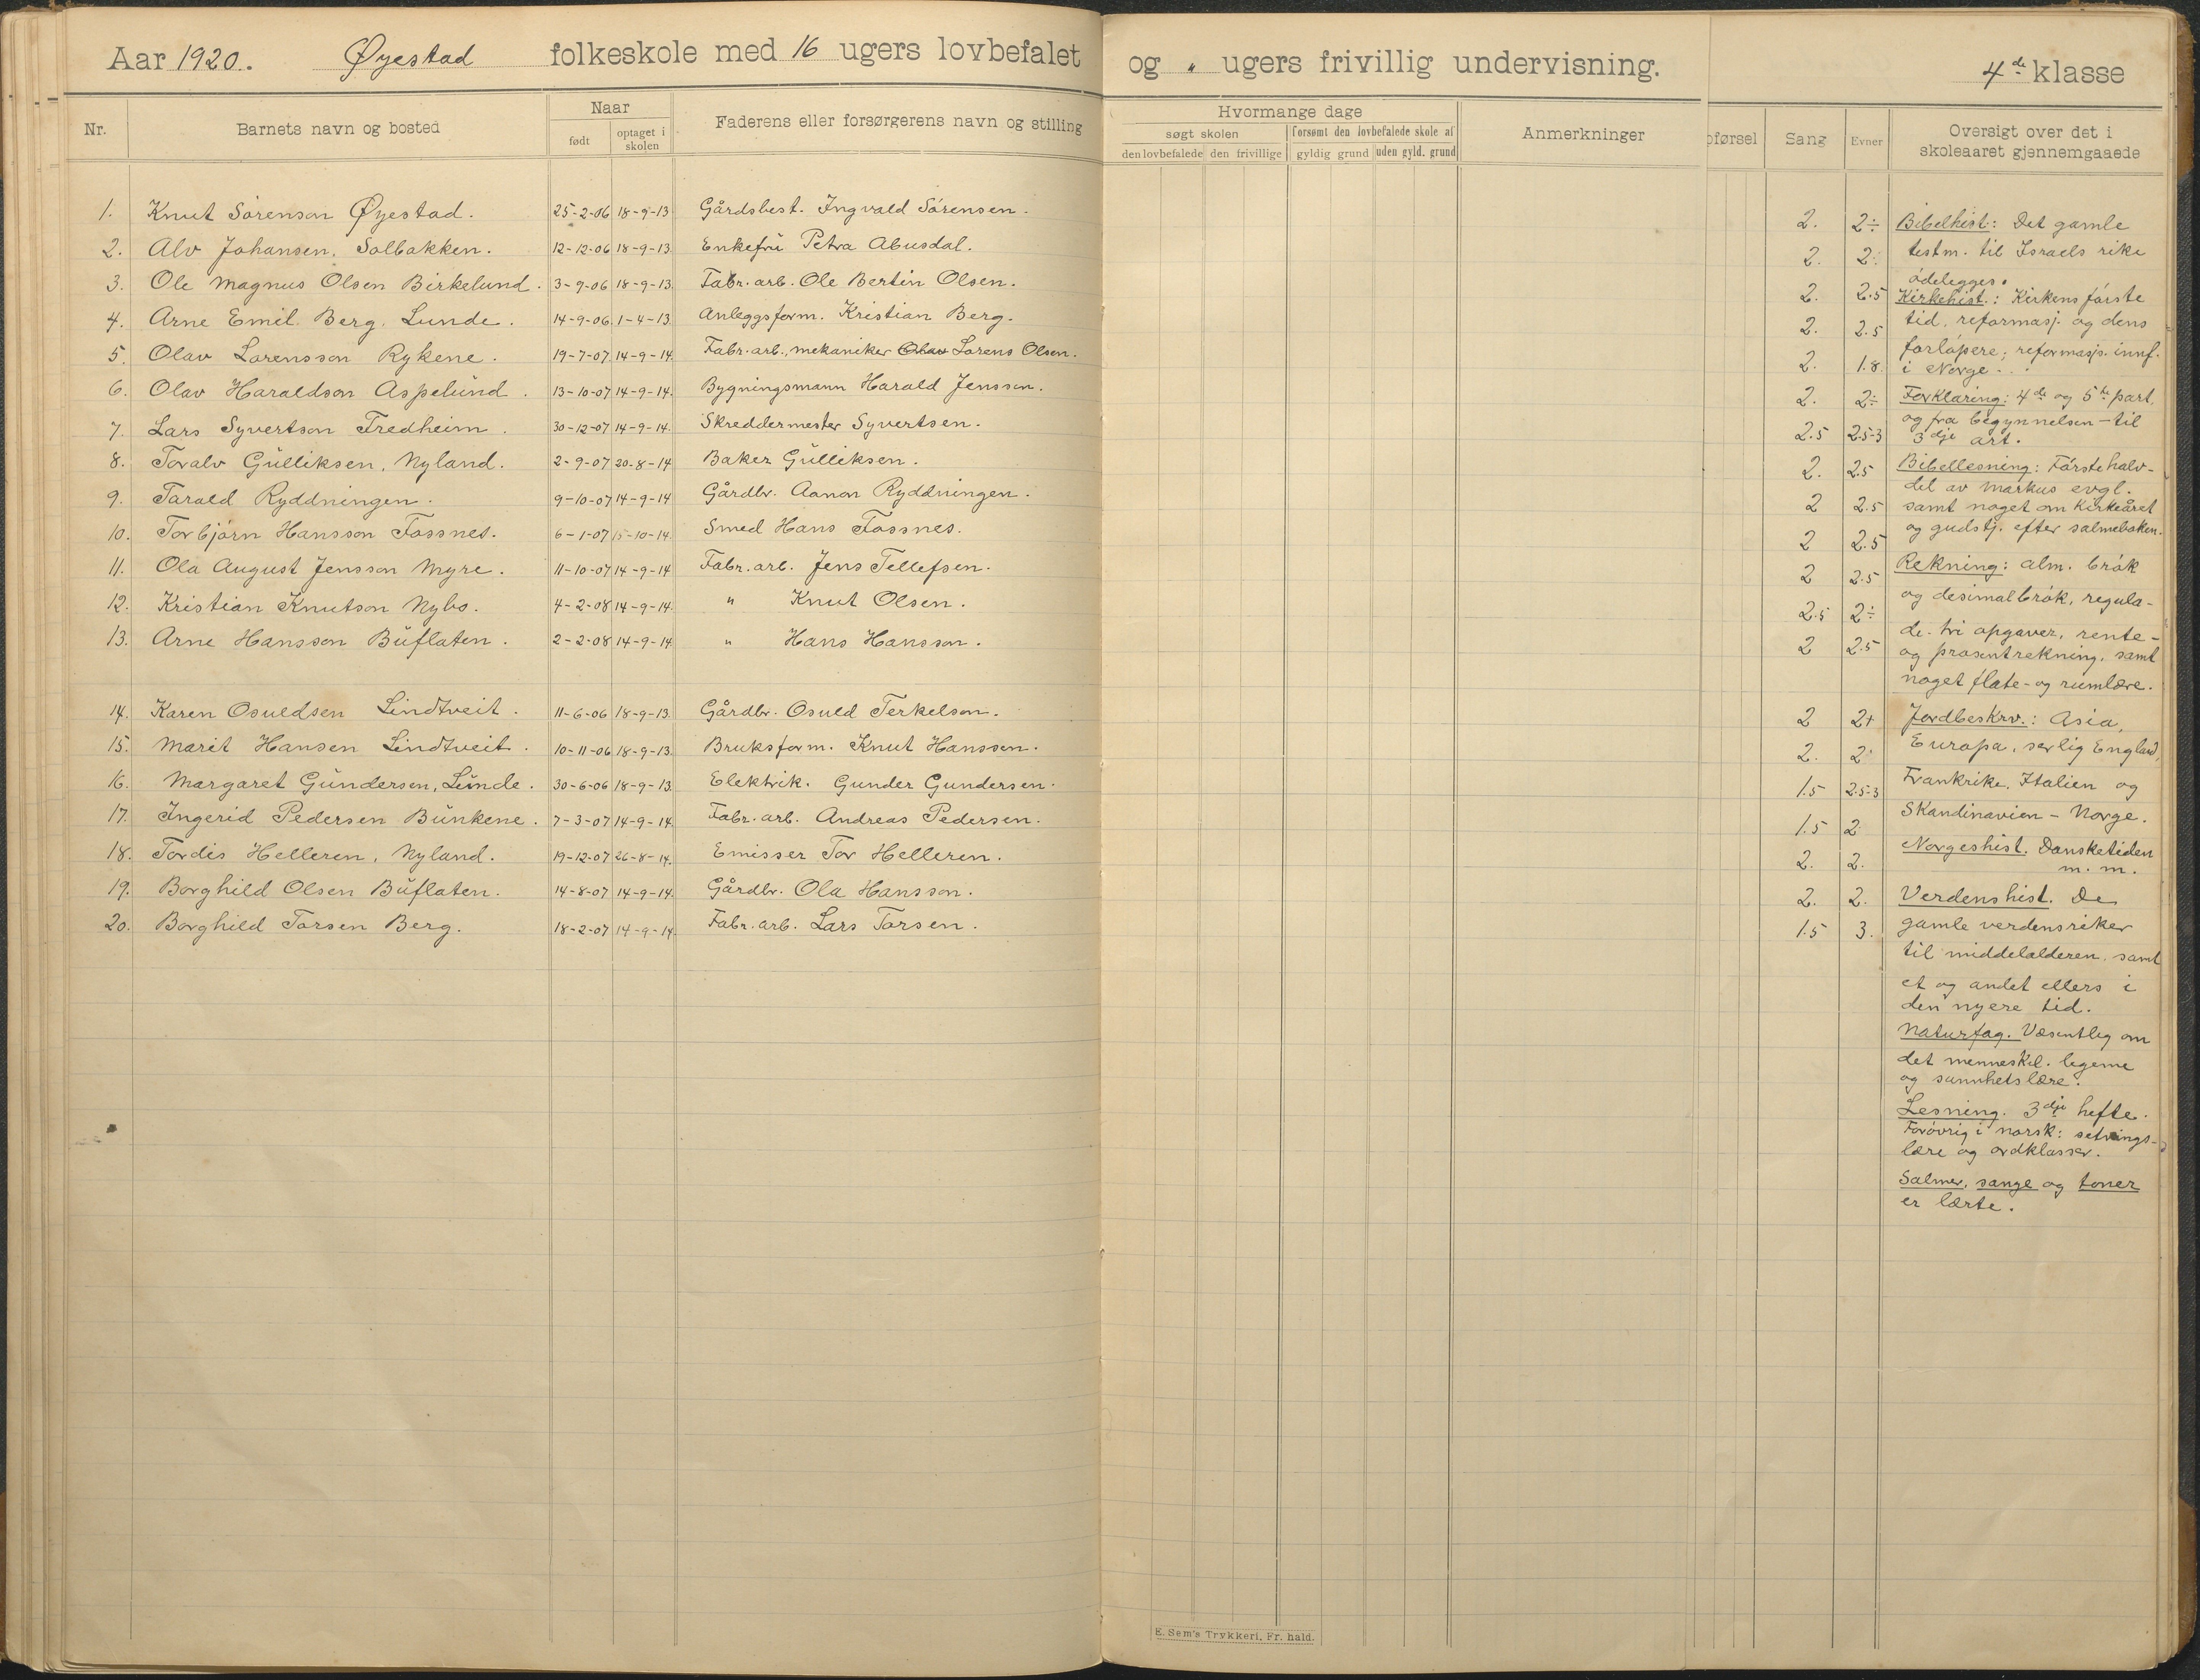 Aar 1920. Øyestad folkeskole med 16 ugers lovbefalet og " ugers frivillig undervisning. 4de klasse
Nr. Barnets navn og bosted Naar født optaget i skolen Faderens eller forsørgerens navn og stilling
Hvormange dage
søgt skolen forsømt den lovbefalede skole af
den lovbefalede den frivillige gyldig grund uden gyld. grund Anmerkninger
pførsel Sang Evner Oversigt over det i skoleaaret gjennemgaaede
1. Knut Sørenson Øyestad. 25-2-06 18-9-13 Gårdsbest. Ingvald Sørensen. 2. 2÷
2. Alv Johansen, Solbakken. 12-12-06 18-9-13. Enkefru Petra Abusdal. 2. 2.
3. Ole Magnus Olsen Birkelund. 3-9-06 18-9-13. Fabr. arb. Ole Bertin Olsen. 2. 2.5
4. Arne Emil Berg, Lunde. 14-9-06. 1-4-13. Anleggsform. Kristian Berg. 2. 2.5
5. Olav Lorensson Rykene. 19-7-07. 14-9-14. Fabr. arb., mekaniker Olav Lorens Olsen. 2. 1.8.
6. Olav Haraldson Aspelund. 13-10-07 14-9-14. Bygningsmann Harald Jenssen. 2. 2÷
7. Lars Syvertson Fredheim. 30-12-07 14-9-14. Skreddermester Syvertsen. 2.5 2.5-3
8. Toralv Gulliksen, Nyland. 2-9-07 20-8-14 Baker Gulliksen. 2. 2.5
9. Tarald Ryddningen. 9-10-07 14-9-14 Gårdbr. Aanon Ryddningen. 2 2.5
10. Torbjørn Hansson Fossnes. 6-1-07 15-10-14. Smed Hans Fossnes. 2 2.5
11. Ola August Jensson Myre. 11-10-07 14-9-14 Fabr. arb. Jens Tellefsen. 2 2.5
12. Kristian Knutson Nybo. 4-2-08 14-9-14. " Knut Olsen. 2.5 2÷
13. Arne Hansson Buflaten. 2-2-08 14-9-14. " Hans Hansson. 2 2.5
14. Karen Osuldsen Lindtveit. 11-6-06 18-9-13. Gårdbr. Osuld Terkelson. 2 2+
15. Marit Hansen Lindtveit. 10-11-06 18-9-13. Bruksform. Knut Hanssen. 2. 2
16. Margaret Gundersen, Lunde. 30-6-06 18-9-13. Elektrik. Gunder Gundersen. 1.5 2.5-3
17. Ingerid Pedersen Bunkene. 7-3-07 14-9-14. Fabr. arb. Andreas Pedersen. 1.5 2
18. Tordis Helleren, Nyland. 19-12-07 26-8-14. Emisser Tor Helleren. 2. 2.
19. Borghild Olsen Buflaten. 14-8-07 14-9-14. Gårdbr. Ola Hansson. 2. 2.
20. Borghild Torsen Berg. 18-2-07 14-9-14. Fabr. arb. Lars Torsen. 1.5 3.
Bibelhist: Det gamle
testm. til Israels rike
ødelegges.
Kirkehist.: Kirkens første
tid, reformasj. og dens
forløpere; reformasjs. innf.
i Norge.
Forklaring: 4de og 5te part,
og fra begynnelsen - til
3dje art.
Bibellesning: Første halv-
del av Markus evgl.
samt noget om kirkeåret
og gudstj. efter salmeboken.
Rekning: Alm. brøk
og desimalbrøk, regula-
de-tri opgaver, rente-
og prosentrekning, samt
noget flate- og rumlære.
Jordbeskrv.: Asia,
Europa, serlig England,
Frankrike, Italien og
Skandinavien - Norge.
Norgeshist. Dansketiden
m. m.
Verdenshist. De
gamle verdensriker
til middelalderen, samt
et og andet ellers i
den nyere tid.
Naturfag. Væsentlig om
det menneskel. legeme
og sunnhetslære.
Lesning. 3dje hefte.
Forøvrig i norsk: setnings-
lære og ordklasser.
Salmer, sange og toner
er lærte.
E. Sem's Trykkeri, Fr. hald.